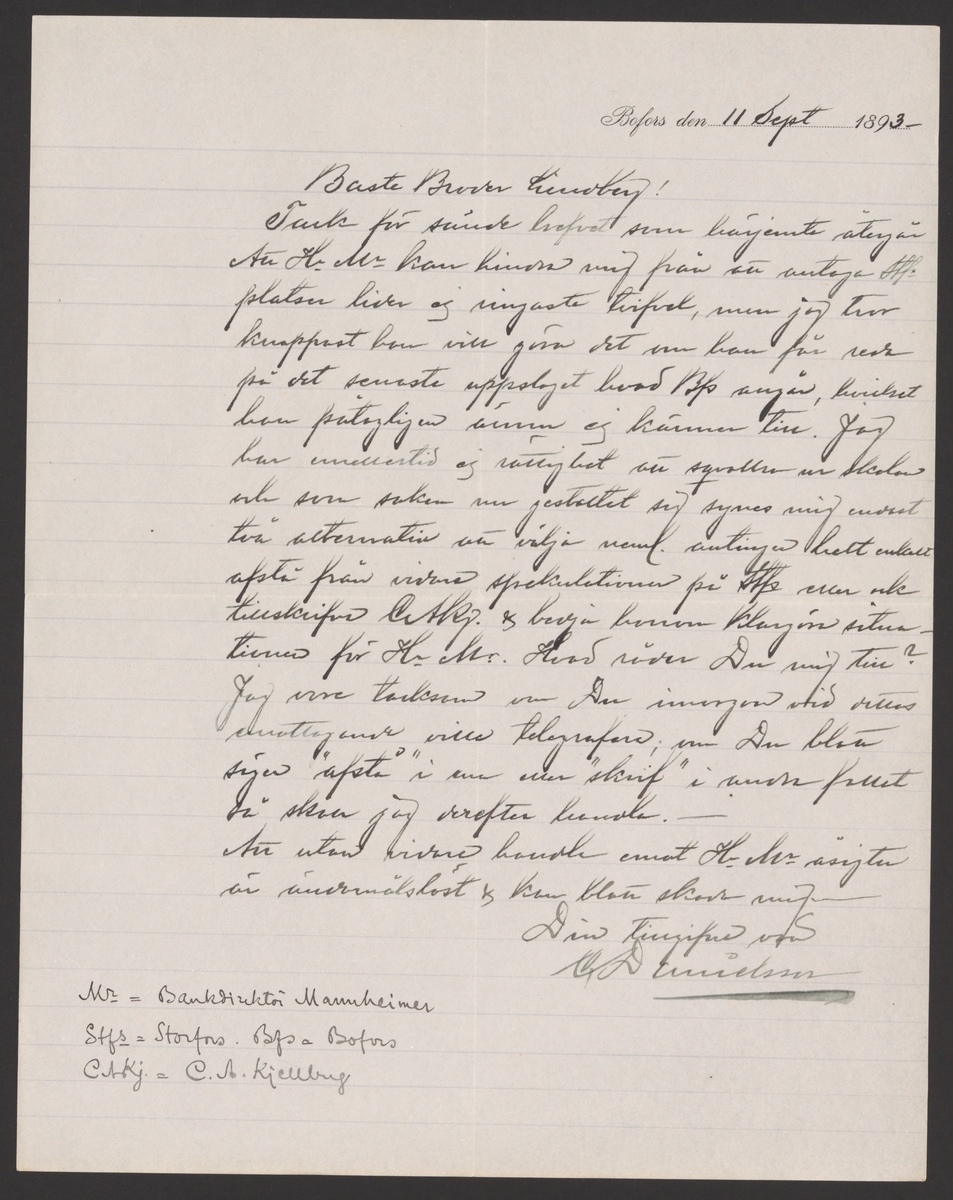 Bofors den 11 Sept 1893-
Bäste Broder Lindberg!
Tack för sände brefvet som härjemte återgår
Att Hr Mr kan hindra mig från att antaga Stfs
platsen lider ej ringaste tvifvel, men jag tror
knappast han vill göra det om han får reda
på det senaste uppslaget hvad Bfs angår, hvilket
han påtagligen ännu ej känner till. Jag
har emellertid ej rättighet att sqvallra ur skolan
och som saken nu gestaltat sig synes mig endast
två alternativ att välja neml. antingen helt enkelt
afstå från vidare spekulationer på Stfs eller ock
tillskrifva CAKj. & bedja honom klargöra situa-
tionen för Hr Mr. Hvad råder Du mig till?
Jag vore tacksam om Du imorgon vid dettas
emottagande ville telegrafera; om Du blott
säger "afstå" i ena eller "skrif" i andra fallet
så skall jag derefter handla. —
Att utan vidare handla emot Hr Mr åsigter
är ändamålslöst & kan blott skada mig —
Din tillgifne vän
C Danielsson
Mr = Bankdirektör Mannheimer
Stfs = Storfors. Bfs = Bofors
CAKj. = C. A. Kjellberg